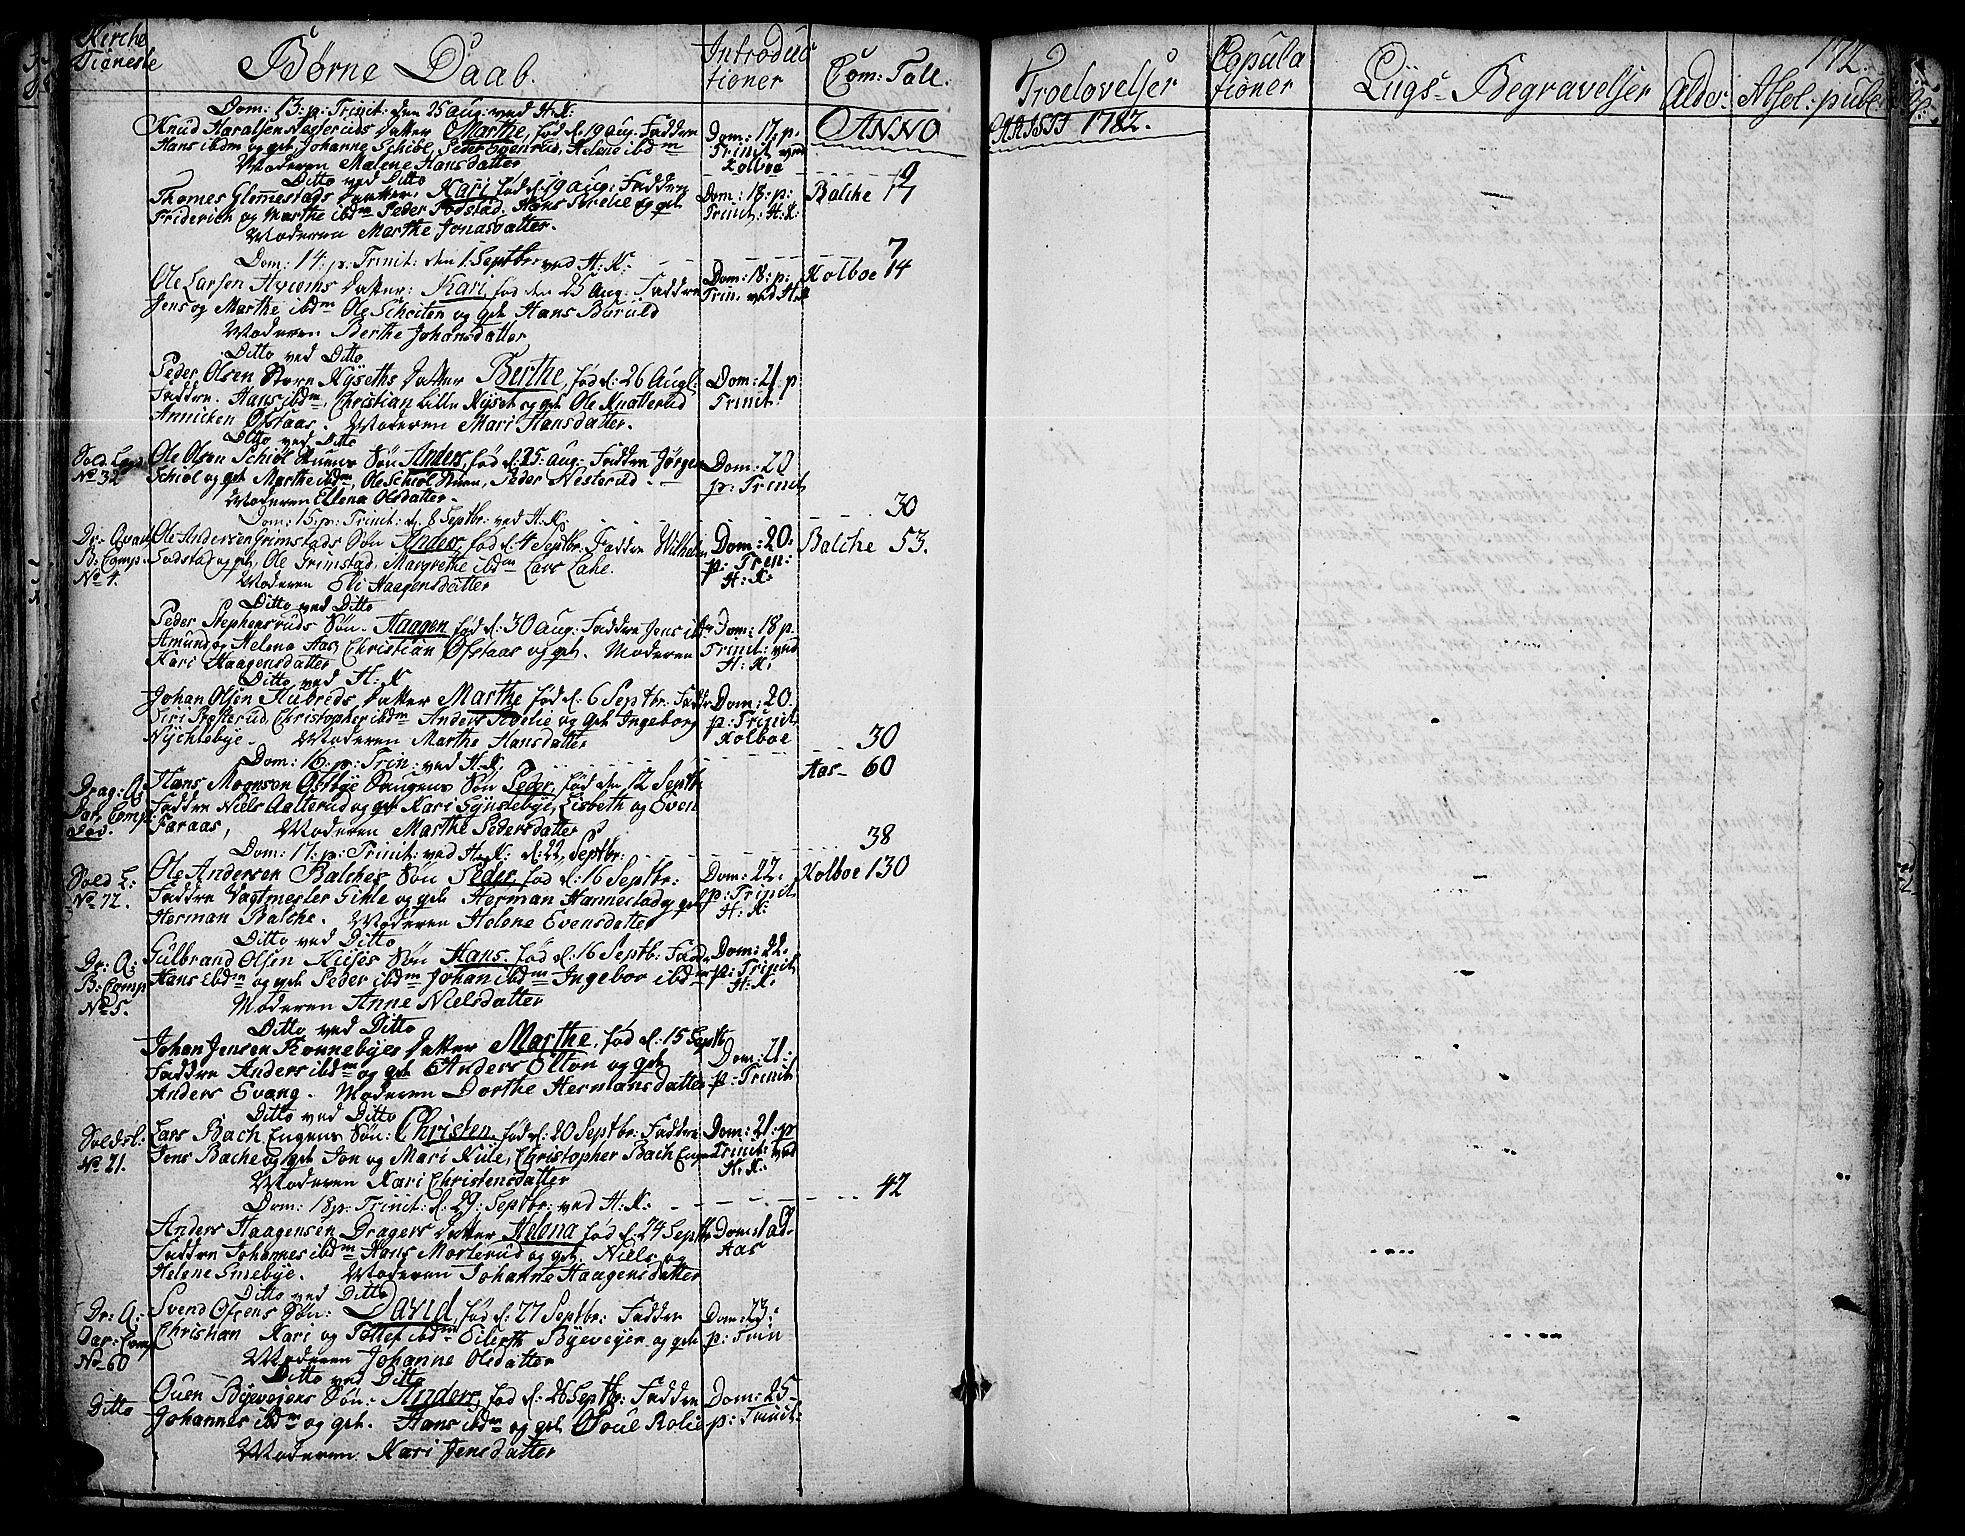 Kirche Tieneste
Børne Daab.
Introductioner
Com: Tall.
Troelovelser
Copulationer
Liigs-Begravelser
Alder
Absol: publ:
172.
ANNO
CHRISTI 1782.
Dom: 13: p: Trinit: den 25 aug: ved H: K:
Knud Haralsen Datter Marthe, fød d: 19 aug: Faddre
Hans ibdm og get Johanne Schiöl, Peder Evenrud, Helene ibdm
Moderen Malene Hansdatter
Dom: 17: p: Trinit ved Kolboe
Ditto ved Ditto
9
Thomes Glemestads Datter, Kari fød d: 19 aug: Faddre
Friderich og Marthe ibdm Peder Sodstad, Hans og get
Moderen Marthe Jonasdatter.
Dom: 18: p: Trinit: H: K:
Balche 17
Dom: 14: p: Trinit: den 1 Septbr ved H: K:
7
Ole Larsen Datter: Kari, fød den 25 Aug: Faddre
Jens og Marthe ibdm Ole Schriten og get Hans Burud
Moderen Berthe Johansdatter
Dom: 18: p: Trin: ved H: K
Kolboe 14
Ditto ved Ditto
Peder Olsen Store Kyseths Datter Berthe, fød d: 26 Aug:
Faddre. Hans ibdm, Christian Lille Kyset og get Ole Knatterud
Annichen Ofstaas. Moderen Mari Hansdatter.
Dom: 21. p Trinit:
Ditto ved Ditto
Sold: No 32
Ole Olsen Schiöl Søn Anders, fød d: 25: aug: Faddre Jørgen
Schiøl og get Marthe ibdm, Ole Schiøl, Peder Nesterud.
Moderen Ellena Olsdatter.
Dom: 20 p: Trinit
Dom: 15: p: Trinit: d: 8 Septbr: ved H: K:
30
B: Comp No 4.
Ole Andersen Grimstads Søn Anders fød d: 4 Septbr: Faddre Wilhelm
Sodstad og get, Ole Grimstad, Margrethe ibdm Lars Lahe.
Moderen Eli Haagensdatter
Dom: 20. p: Tren: H: K:
Balche 53.
Ditto ved Ditto
Peder Stephensruds Søn. Haagen fød d: 30 aug: Faddre Jens ibdm
Amund og Helena Aas, Christian Ofstaas og get. Moderen
Kari Haagensdatter
Dom: 18 p. Trinit: ved H: K:
Ditto ved H: K
Johan Olsen Hubreds Datter Marthe fød d: 6 Septbr. Faddre
Siri Prøsterud, Christopher ibdm Anders og get Ingeborg
Nychlebye. Moderen Marthe Hansdatter
Dom: 20. p: Trinit Kolboe
30
Dom: 16: p: Trin: ved H: K:
Aas 60
Drag: Comp
Hans Moensen Østbye Søn Peder, fød den 12 Septbr
Faddre Niels Aalterud og get Kari Lisbeth og Even
Faraas, Moderen Marthe Pedersdatter
38
Dom: 17: p: Trinit: ved H: K: d: 22 Septbr:
Sold L: No 72.
Ole Andersen Balches Søn Peder, fød d: 16 Septbr:
Faddre Vagtmester og get Herman Hannestad og get
Herman Balche. Moderen Helene Evensdatter
Dom: 22. p: Trinit H: K:
Kolboe 130
Ditto ved Ditto
Dr: A: B: Comp No 5.
Gulbrand Olsen Kiises Søn Hans. fød d: 16 Septb: Faddre
Hans ibdm og get Peder ibdm Johan ibdm Ingebor ibdm
Moderen Anne Nielsdatter
Dom: 22. p: Trinit H: K:
Ditto ved Ditto
Johan Jensen Rønnebyes Datter Marthe, fød d: 15 Septb
Faddre Anders ibdm og get Anders Elton og get
Anders Evang. Moderen Dorthe Hermansdatter
Dom: 21: p: Trinit
Ditto ved Ditto
Soldsl: No 21.
Lars Bach Engens Søn: Christen, fød d: 20 Septbr: Faddre
Jens Bache og get Jon og Mari Kiile, Christopher Bach
Moderen Kari Christensdatter
Dom: 21: p Trinit: ved H: K:
Dom: 18 p: Trinit: d: 29: Septbr: ved H: K:
42
Anders Haagensen Dragers Datter Helena fød d: 24 Septbr
Faddre Johannes ibdm Hans Morterud og get. Niels og
Helene Smebye. Moderen Johanne Haagensdatter
Aas
Ditto ved Ditto
Dr: A: Comp No 60
Svend Ofsens Søn: David, fød d: 27 Septbr: Faddre
Christian Kari og Tollef ibdm Eilerth Byevejen og get
Moderen Johanne Olsdatter
Dom: 23: p: Trin
Ditto ved Ditto
Ditto
Ouen Byevejens Søn: Anders, fød d: 26 Septbr: Faddre
Johannes ibdm og get. Hans ibdm og get Poul Rolie
Moderen Kari Jensdatter
Dom: 25 p: Trinit: